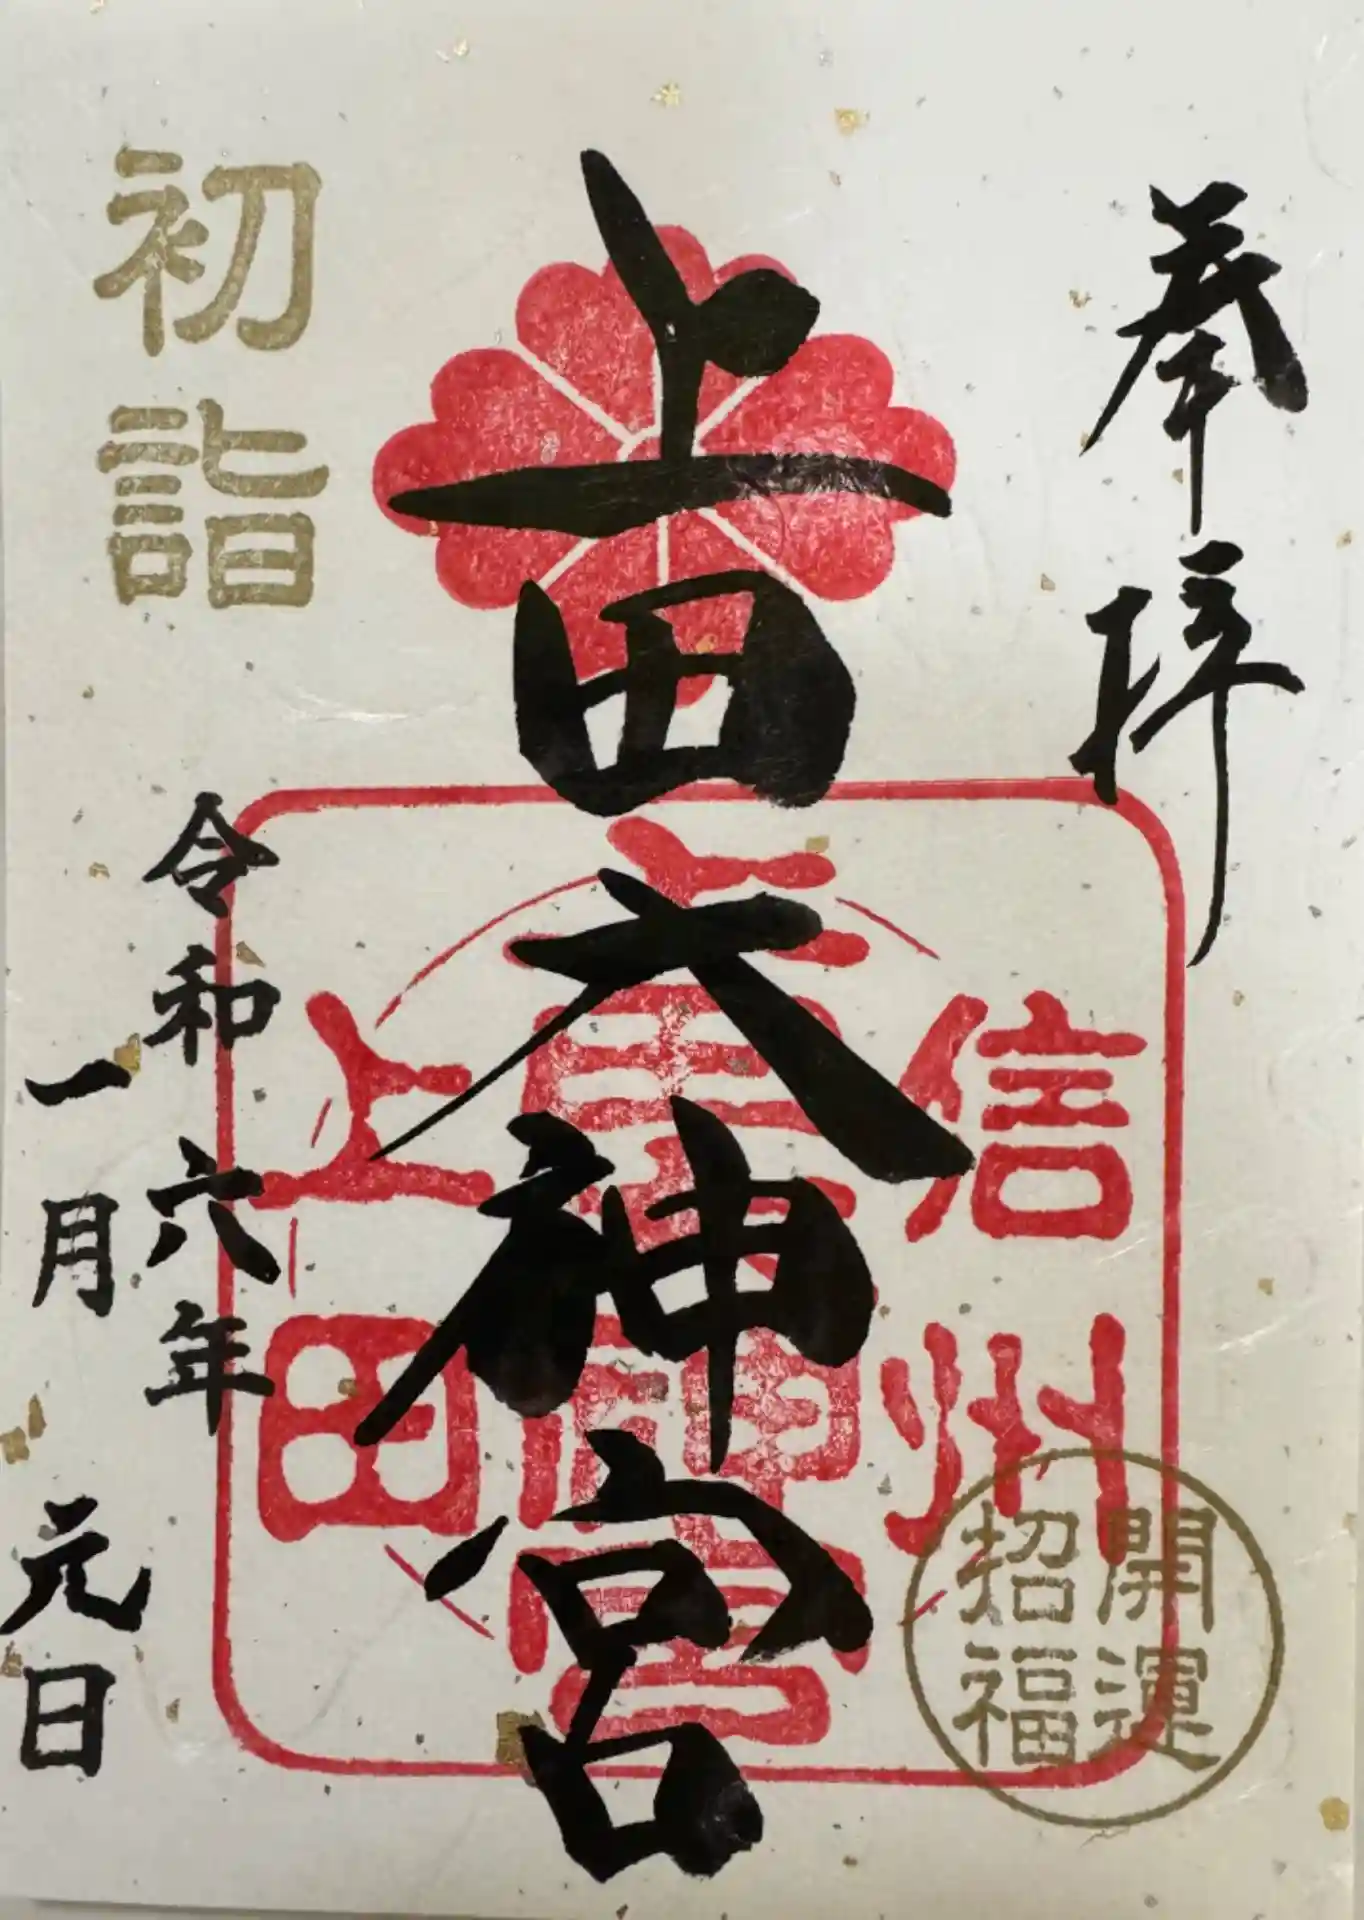 奉拝
信州
開運
招福
上田大神宮
上田
初詣
令和六年
一月元日